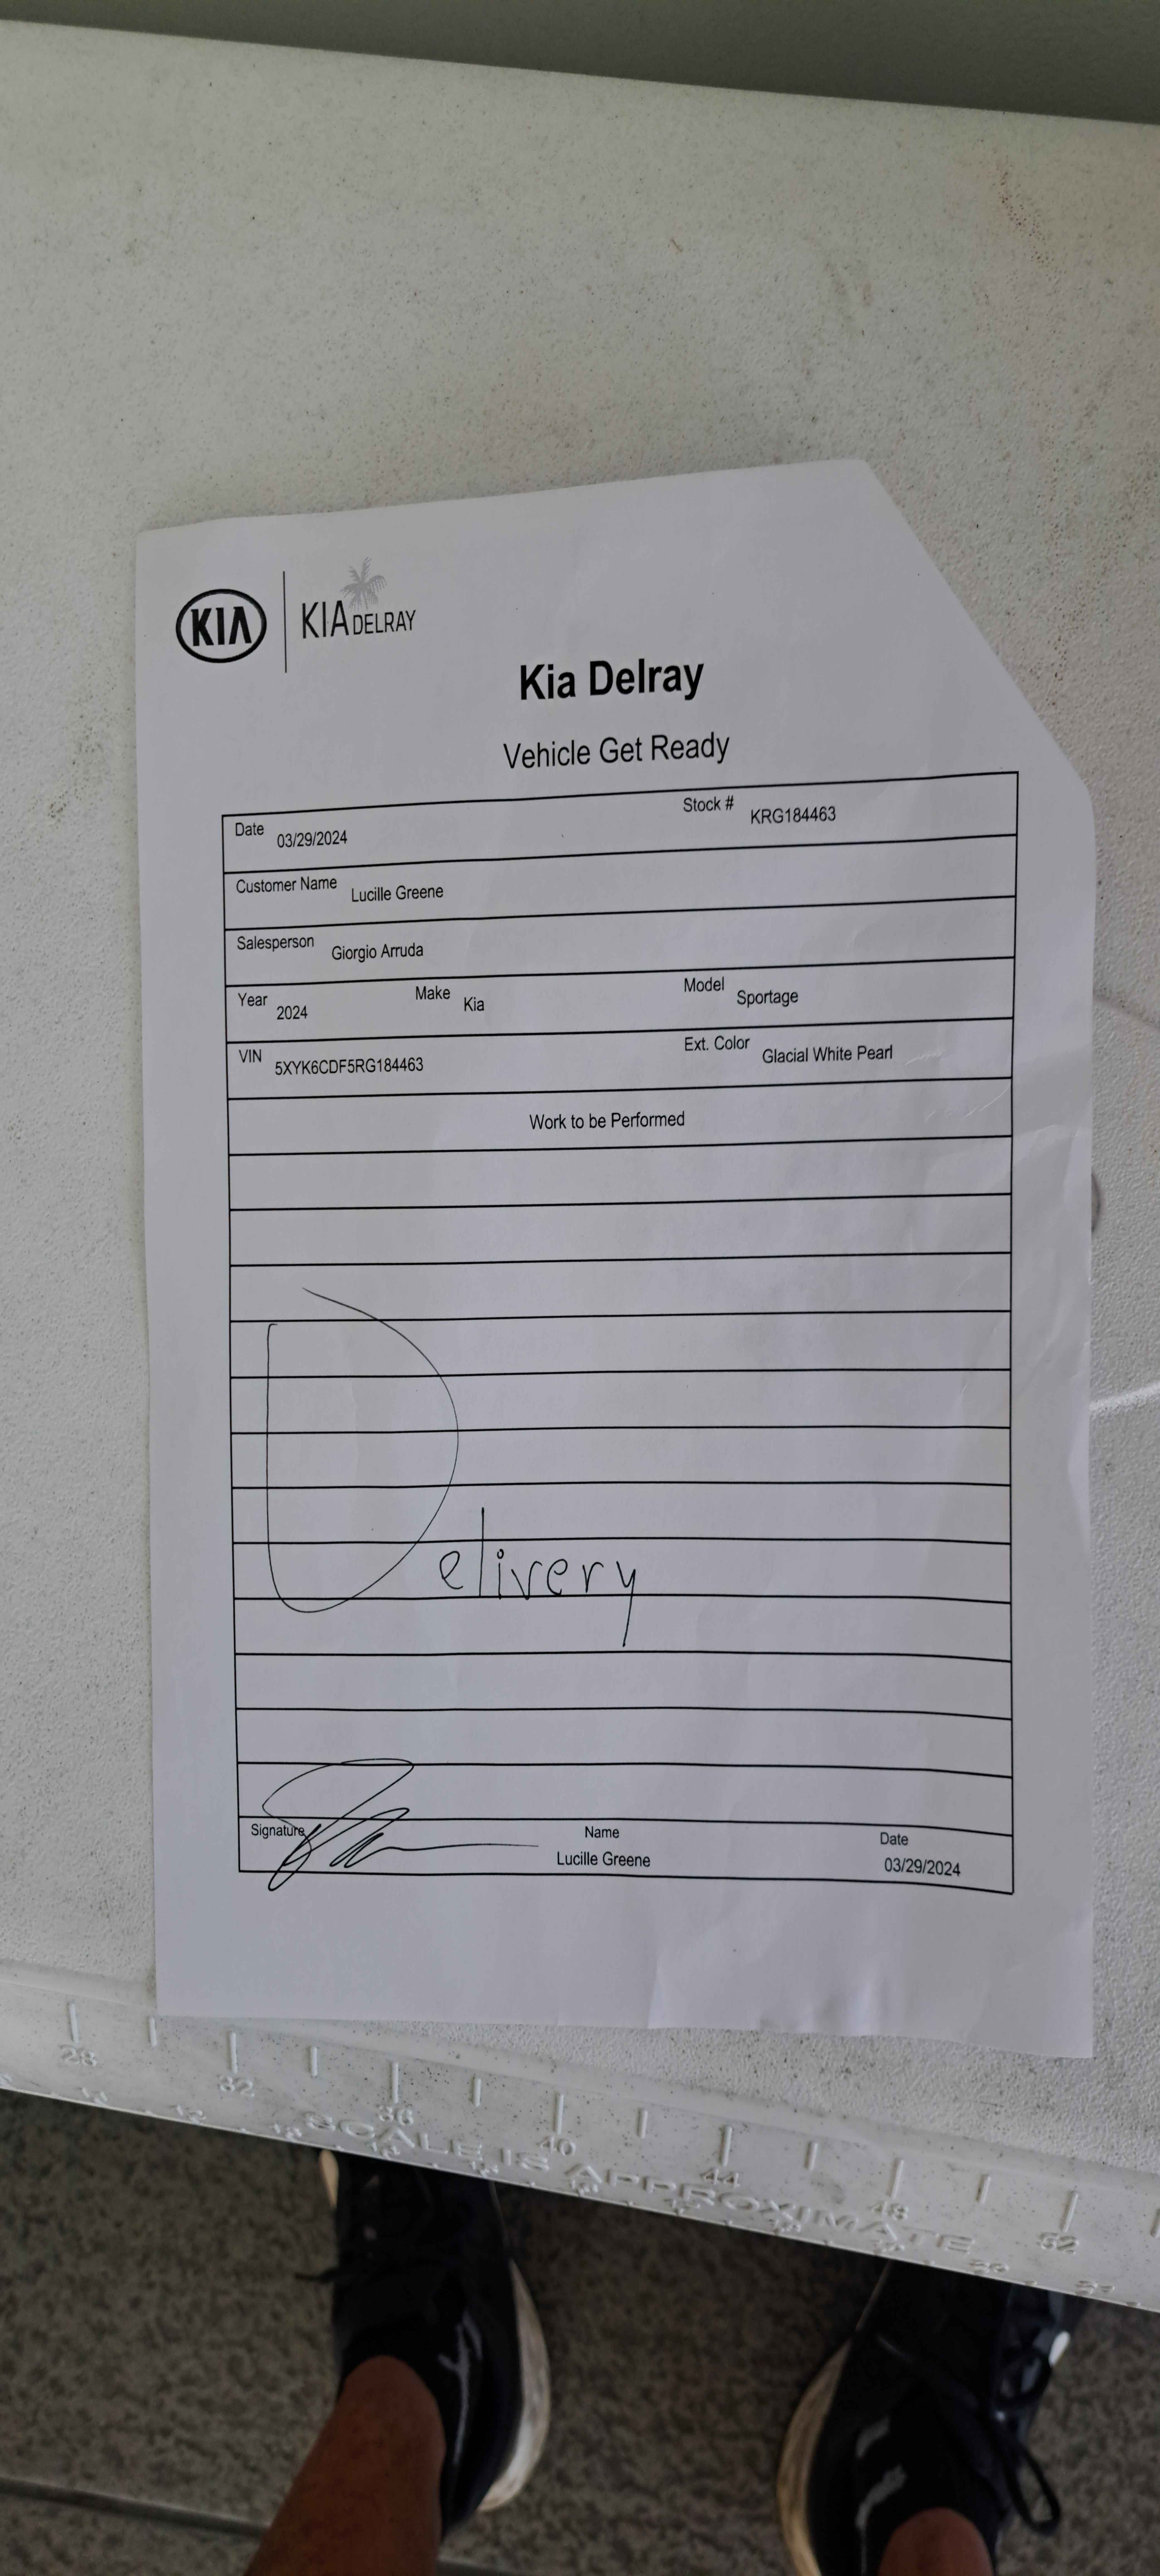 KIA KIA DELRAY
Kia Delray
Vehicle Get Ready
Date 03/29/2024 Stock # KRG184463
Customer Name Lucille Greene
Salesperson Giorgio Arruda
Year 2024 Make Kia Model Sportage
VIN 5XYK6CDF5RG184463 Ext. Color Glacial White Pearl
Work to be Performed
Delivery
Signature Name Date
Lucille Greene 03/29/2024
28 32 36 40 44 48 52
SCALE IS APPROXIMATE